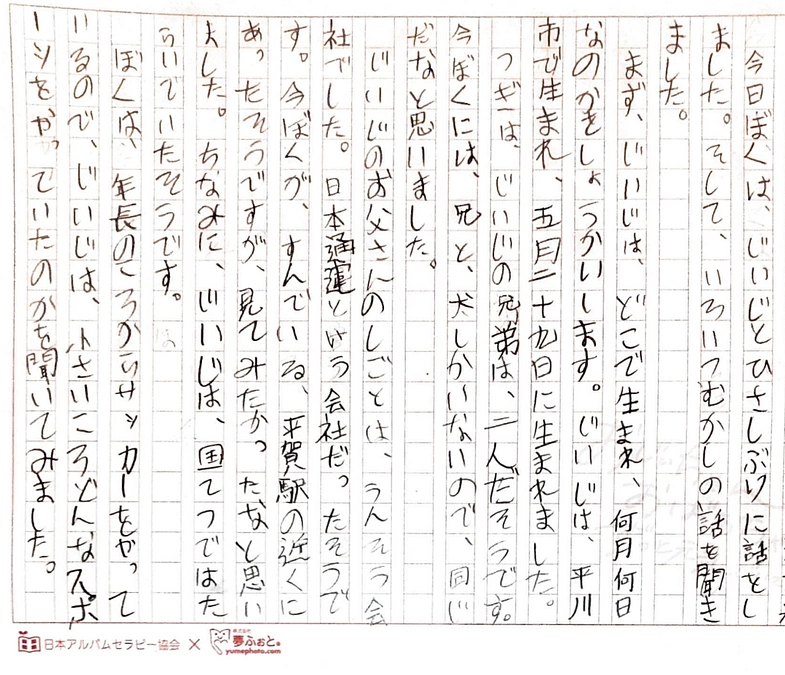 今日ぼくは、じいじとひさしぶりに話をし
ました。そして、いろいろむかしの話を聞き
ました。
まず、じいじは、どこで生まれ、何月何日
なのかをしょうかいします。じいじは、平川
市で生まれ、五月二十九日に生まれました。
つぎは、じいじの兄弟は、二人だそうです。
今ぼくには、兄と、犬しかいないので、同じ
だなと思いました。
じいじのお父さんのしごとは、うんそう会
社でした。日本通運とゆう会社だったそうで
す。今ぼくが、すんでいる、平賀駅の近くに
あったそうですが、見てみたかったなと思い
ました。ちなみに、じいじは、国てつではた
らいでいたそうです。
ぼくは、年長のころからサッカーをやって
いるので、じいじは、小さいころどんなスポ
ーツをやっていたのかを聞いてみました。
日本アルバムセラピー協会 × 株式会社 夢ふぉと。
yumephoto.com